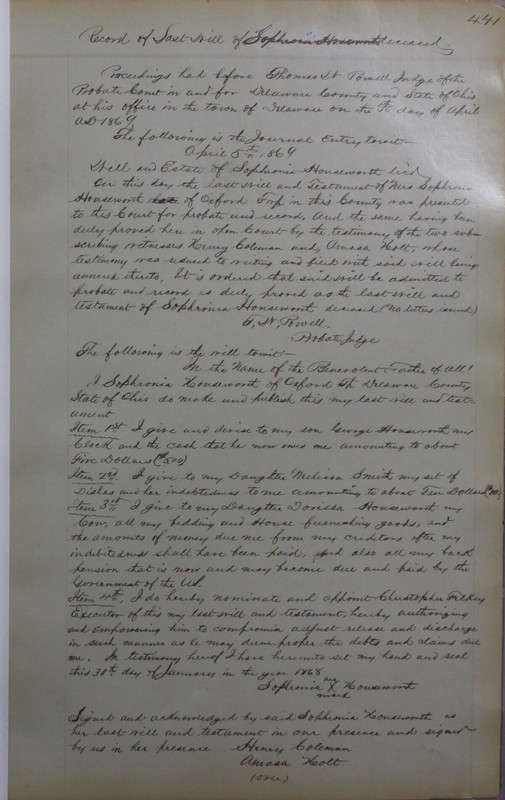 441
Record of Last Will of Sophronia Honseworth deceased
Proceedings had before Thomas W Powell Judge of the
Probate Court in and for Delaware County and State of Ohio
at his office in the town of Delaware on the day of April
AD 1869
The following is the Journal Entry towit—
April 5th 1869
Will and Estate of Sophronia Honseworth decd
On this day the last Will and Testament of Mrs Sophronia
Honseworth of Oxford Twp in this County was presented
to this Court for probate and record, And the same having been
duly proved here in open Court by the testimony of the two sub-
scribing witnesses Henry Coleman and Amasa Holt, whose
testimony was reduced to writing and filed with said will being
annexed thereto. It is ordered that said will be admitted to
probate and record as duly proved as the last will and
testament of Sophronia Honseworth deceased (no letters issued)
T. W. Powell.
Probate Judge
The following is the will towit—
In the Name of the Benevolent Father of All!
I Sophronia Honseworth of Oxford Tp. Delaware County
State of Ohio do make and publish this my last will and test-
ament
Item 1st I give and devise to my son George Honseworth my
Clock and the cash that he now owes me amounting to about
Five Dollars ($5.00)
Item 2nd. I give to my Daughter Melissa Smith my set of
Dishes and her indebtedness to me amounting to about Ten Dollars
Item 3rd I give to my Daughter Dorissa Honseworth my
Cow, all my bedding and House furnishing goods, and
the amounts of money due me from my creditors after my
indebtedness shall have been paid, and also all my back
pension that is now and may become due and paid by the
Government of the US.
Item 4th. I do hereby nominate and appoint Christopher
Executor of this my last will and testament, hereby authorizing
and empowering him to compromise adjust release and discharge
in such manner as he may deem proper the debts and claims due
me. In testimony hereof I have hereunto set my hand and seal
this 30th day of January in the year 1868
Sophronia her X mark Honseworth
Signed and acknowledged by said Sophronia Honseworth as
her last will and testament in our presence and signed
by us in her presence Henry Coleman
Amasa Holt
(over)